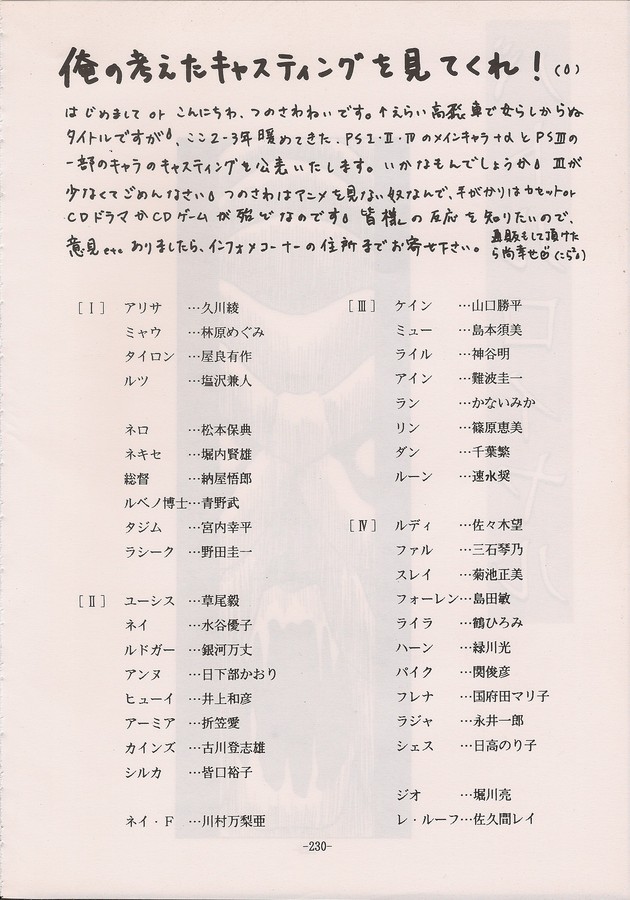 俺の考えたキャスティングを見てくれ！(0)
はじめまして or こんにちわ、つのさわねいです。↑えらい高飛車で女らしからぬ
タイトルですが、ここ2-3年暖めてきた、PSⅠ・Ⅱ・Ⅳのメインキャラ+αとPSⅢの
一部のキャラのキャスティングを公表いたします。いかなもんでしょうか。Ⅲが
少なくてごめんなさい。つのさわはアニメを見ない奴なんで、手がかりはカセットor
CDドラマかCDゲームが殆どなのです。皆様の反応を知りたいので、
意見etcありましたら、インフォメコーナーの住所までお寄せ下さい。
通販もして頂けた
ら尚幸せ
[Ⅰ] アリサ …久川綾
ミャウ …林原めぐみ
タイロン …屋良有作
ルツ …塩沢兼人
ネロ …松本保典
ネキセ …堀内賢雄
総督 …納屋悟郎
ルベノ博士…青野武
タジム …宮内幸平
ラシーク …野田圭一
[Ⅱ] ユーシス …草尾毅
ネイ …水谷優子
ルドガー …銀河万丈
アンヌ …日下部かおり
ヒューイ …井上和彦
アーミア …折笠愛
カインズ …古川登志雄
シルカ …皆口裕子
ネイ・F …川村万梨亜
[Ⅲ] ケイン …山口勝平
ミュー …島本須美
ライル …神谷明
アイン …難波圭一
ラン …かないみか
リン …篠原恵美
ダン …千葉繁
ルーン …速水奨
[Ⅳ] ルディ …佐々木望
ファル …三石琴乃
スレイ …菊池正美
フォーレン…島田敏
ライラ …鶴ひろみ
ハーン …緑川光
パイク …関俊彦
フレナ …国府田マリ子
ラジャ …永井一郎
シェス …日高のり子
ジオ …堀川亮
レ・ルーフ…佐久間レイ
-230-